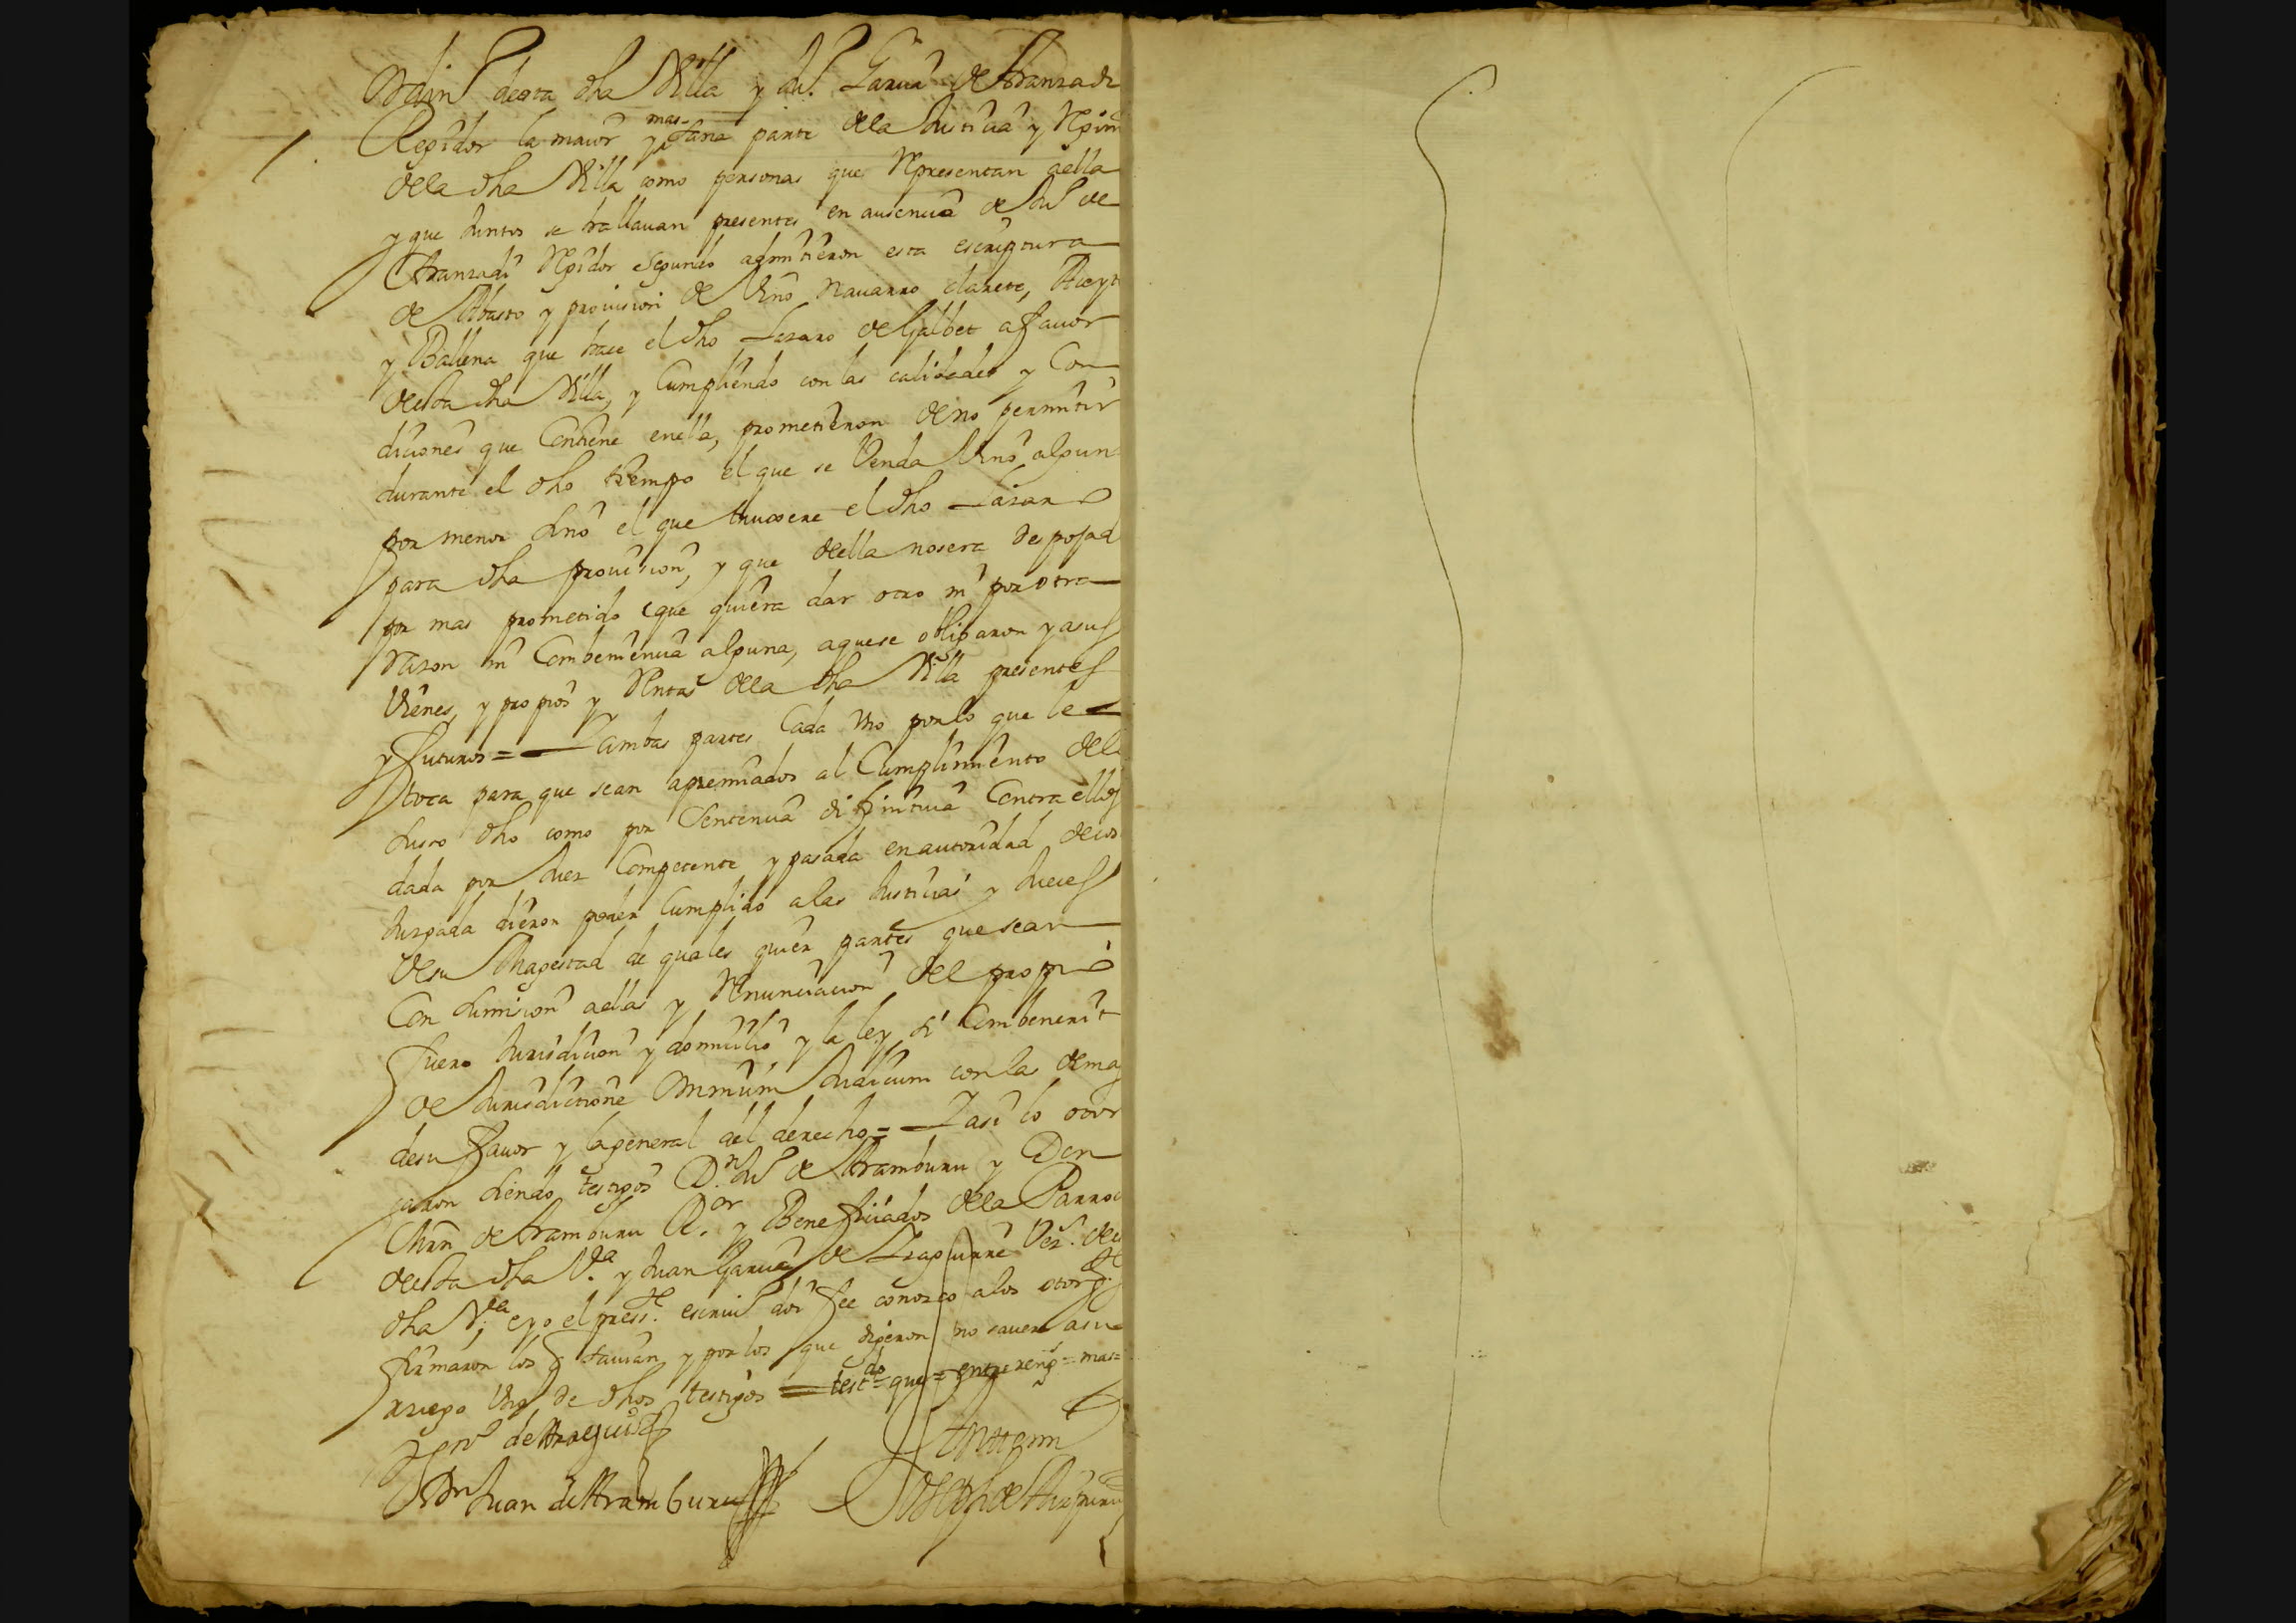 desta dha Villa y Ju.º Garcia de Aranzadi
Regidor la maior y mas sana parte dela Justicia y Rgim
dela dha Villa como personas que Representan aella
y que Juntos se hallauan presentes en ausencia de Ju.º de
Aranzadi Regidor segundo admitieron esta escriptura
de Abasto y prouision de Vino nauarro clarete, Aceyt
y Ballena que hace el dho Lazaro de Galbet a fauor
desta dha Villa, y Cumpliendo con las calidades y Con
diciones que Contiene enella, prometieron de no permitir
durante el dho tiempo el que se Venda Vino algun
por menor sino el que truxere el dho Lazaro
para dha prouision, y que della nosera despojad
por mas prometido que quiera dar otro ni por otra
Razon ni Combeniencia alguna, aquese obligaron y asus
Vienes, y propios y Rentas dela dha Villa presentes
y futuros = Y ambas partes Cada Vno porlo que le
toca para que sean apremiados al Cumplimiento dello
suso dho como por Sentencia difinitiua Contra ellos
dada por Juez Competente y pasada en autoridad de cos
Juzgada dieron poder Cumplido a las Justicias y Jueces
de su Magestad de quales quier partes que sean
Con sumision aellas y Renunciacion del propio
fuero Jurisdicion y domicilio y la ley si Combenerit
de Jurisdictione Omnium Judicum con las demas
de su fauor y lageneral del derecho = Y asi lo otor
garon siendo testigos D.n Ju.º de Aramburu y Don
Mrn de Aramburu R.or y Beneficiados dela Parroc
desta dha V.a y Juan Garcia de Yraguirre Vez.º de
dha V.lla eyo el press.te escriu.º doi fee conozco alos otorg.tes
firmaron los q sauian y por los que dijeron no sauer asu
ruego Vno de dhos testigos = test.do = que = entre reng.s = mas =
de Areguis
Dn Juan de Aramburu
Ante mi
Joseph de